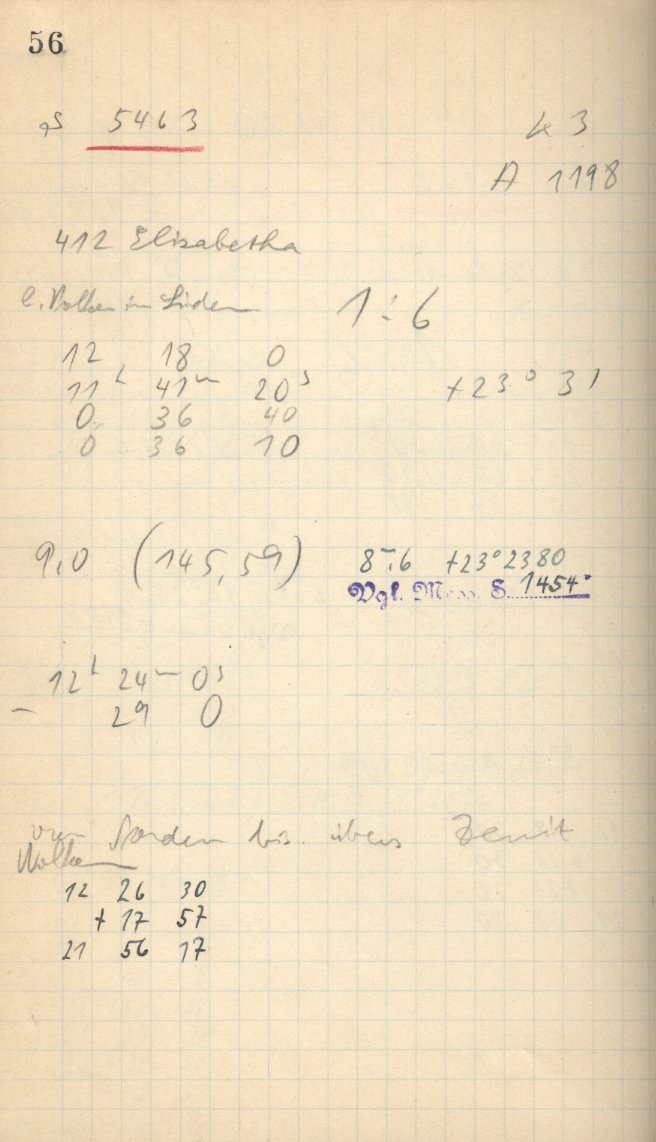 56
S 5463
43
A 1198
412 Elisabetha
l. Wolken im Süden 1:6
12 18 0
11ʰ 41ᵐ 20ˢ +23° 31
0 36 40
0 36 10
9,0 (145,59) 8ᵐ,6 +23°2380
Vgl. Mess. S. 1454
12ʰ 24ᵐ 0ˢ
– 29 0
von Norden bis übers Zenit
Wolken
12 26 30
+ 17 57
21 56 17